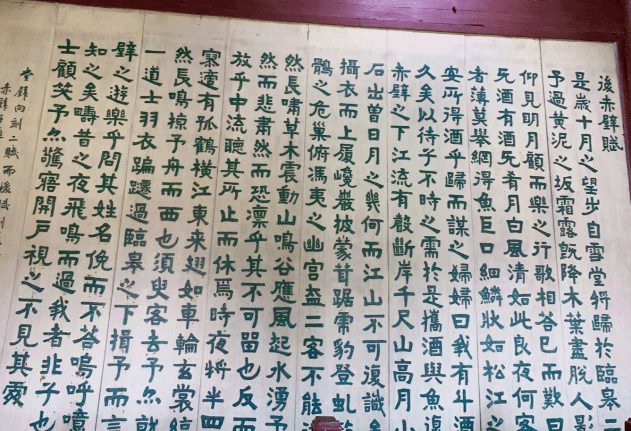 後赤壁賦
是歲十月之望步自雪堂將歸於臨皋二
予過黃泥之坂霜露既降木葉盡脫人影
仰見明月顧而樂之行歌相答已而歎曰
无酒有酒无肴月白風清如此良夜何客
者薄莫舉網得魚巨口細鱗狀如松江之
安所得酒乎歸而謀之婦婦曰我有斗酒
久矣以待子不時之需於是攜酒與魚復
赤壁之下江流有聲斷岸千尺山高月小
石出曾日月之幾何而江山不可復識
攝衣而上履巉巖披蒙茸踞虎豹登虬
鶻之危巢俯馮夷之幽宮蓋二客不能
然長嘯草木震動山鳴谷應風起水湧予
然而悲肅然而恐凜乎其不可留也反而
放乎中流聽其所止而休焉時夜將半四
寂寥有孤鶴橫江東來翅如車輪玄裳縞
然長鳴掠予舟而西也須臾客去予亦就
一道士羽衣蹁躚過臨皋之下揖予而言
壁之遊樂乎問其姓名俛而不答嗚呼噫
知之矣疇昔之夜飛鳴而過我者非子也
士顧笑予亦驚寤開戶視之不見其處
堂壁向刻二賦而後
赤壁